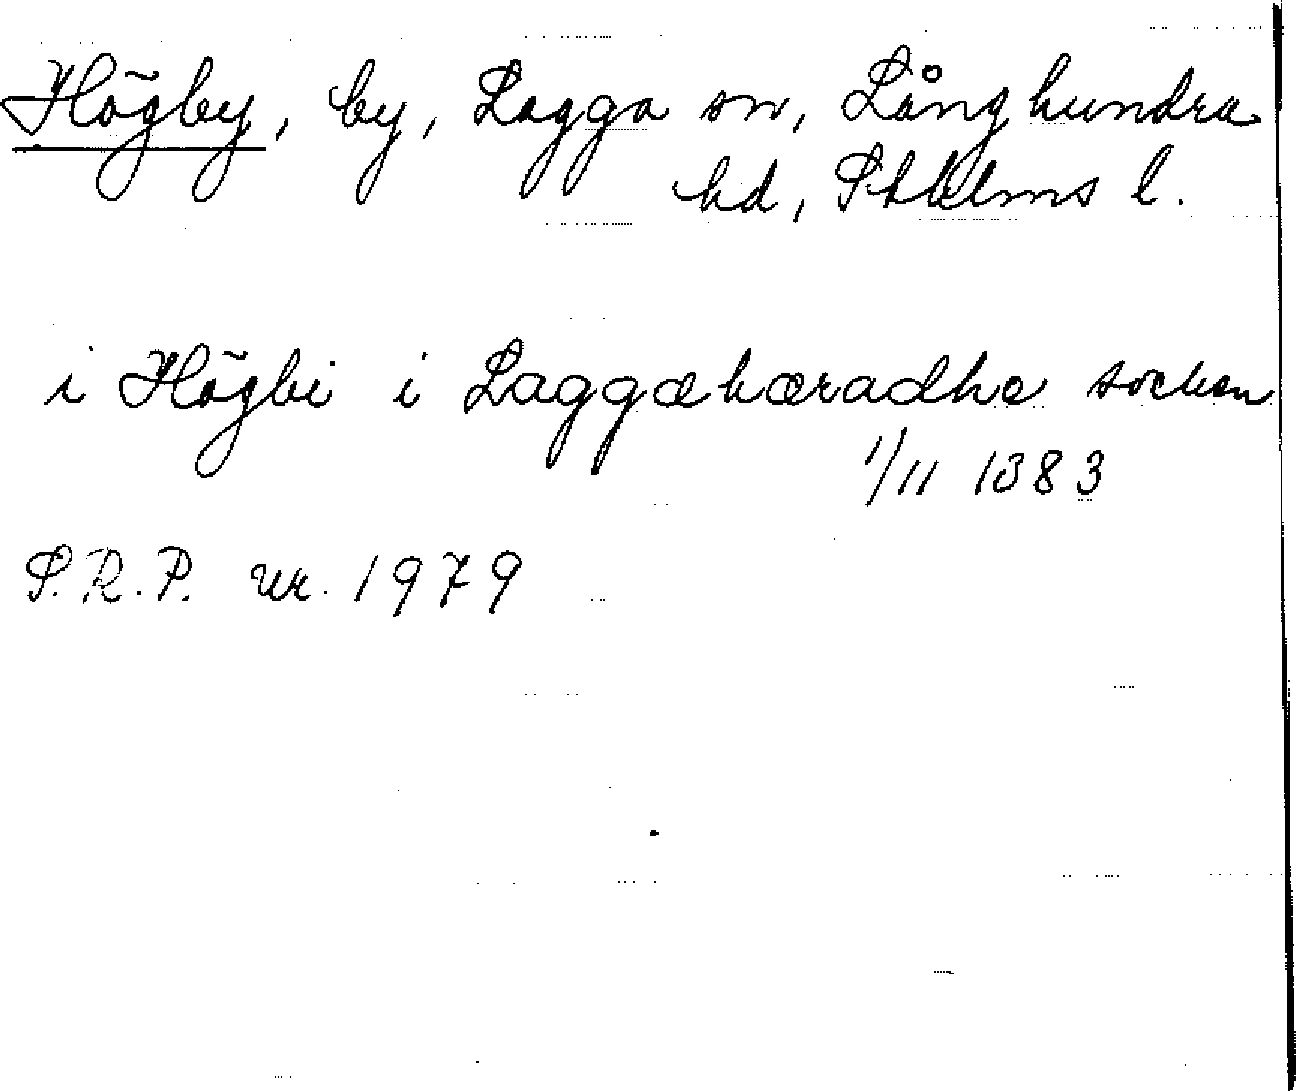 Högby, by, Lagga sn, Långhundra
hd, Sthlms l.
i Högbi i Laggæhæradhe socken
1/11 1383
S.R.P. nr. 1979